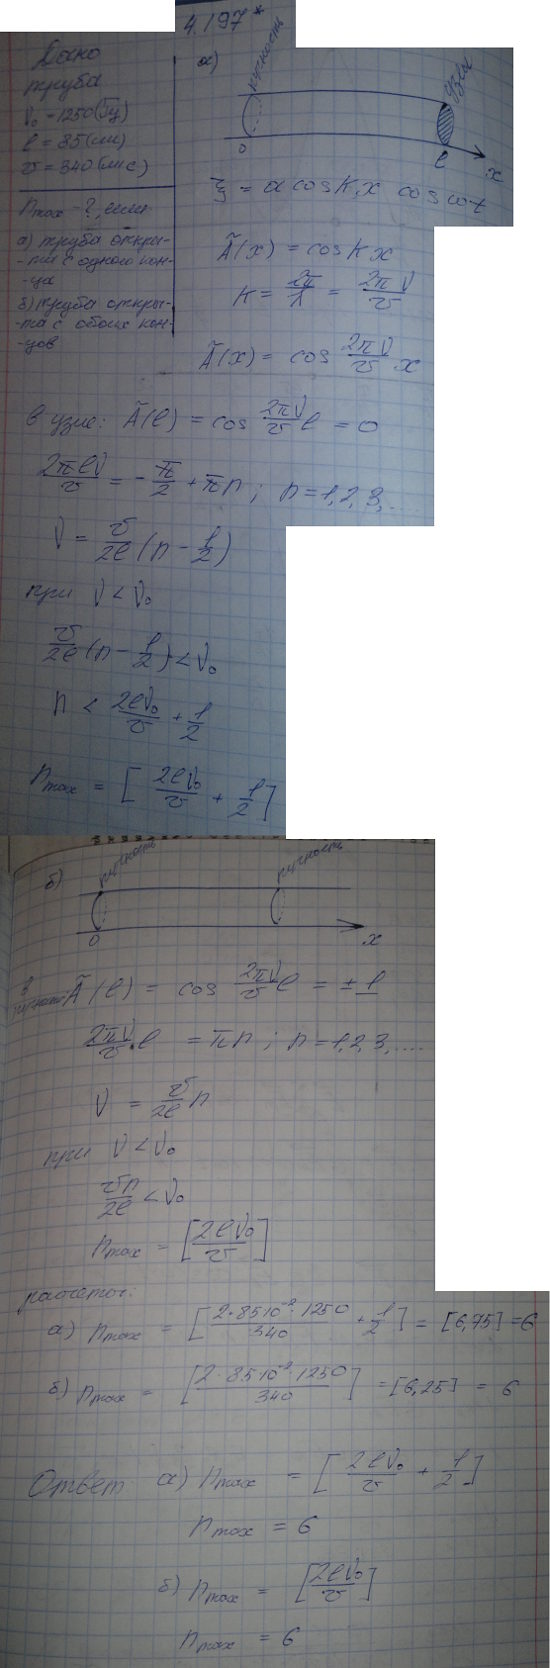 4.197*
Дано
труба
ν₀ = 1250 (Гц)
l = 85 (см)
v = 340 (м/с)
nmax - ?, если
а) труба откры-
-та с одного кон-
-ца
б) труба откры-
-та с обоих кон-
-цов
а)
пучность
узел
0
l
x
ξ = a cos kx cos ωt
Ã(x) = cos kx
k = 2π/λ = 2πν/v
Ã(x) = cos 2πν/v x
в узле: Ã(l) = cos 2πν/v l = 0
2πlν/v = -π/2 + πn; n = 1,2,3,...
ν = v/2l (n - 1/2)
при ν < ν₀
v/2l (n - 1/2) < ν₀
n < 2lν₀/v + 1/2
nmax = [2lν₀/v + 1/2]
б)
пучность
пучность
0
x
в пучности: Ã(l) = cos 2πν/v l = ±1
2πν/v · l = πn; n = 1,2,3,....
ν = v/2l n
при ν < ν₀
vn/2l < ν₀
nmax = [2lν₀/v]
расчеты:
а) nmax = [2·85·10⁻²·1250/340 + 1/2] = [6,75] = 6
б) nmax = [2·85·10⁻²·1250/340] = [6,25] = 6
Ответ а) nmax = [2lν₀/v + 1/2]
nmax = 6
б) nmax = [2lν₀/v]
nmax = 6